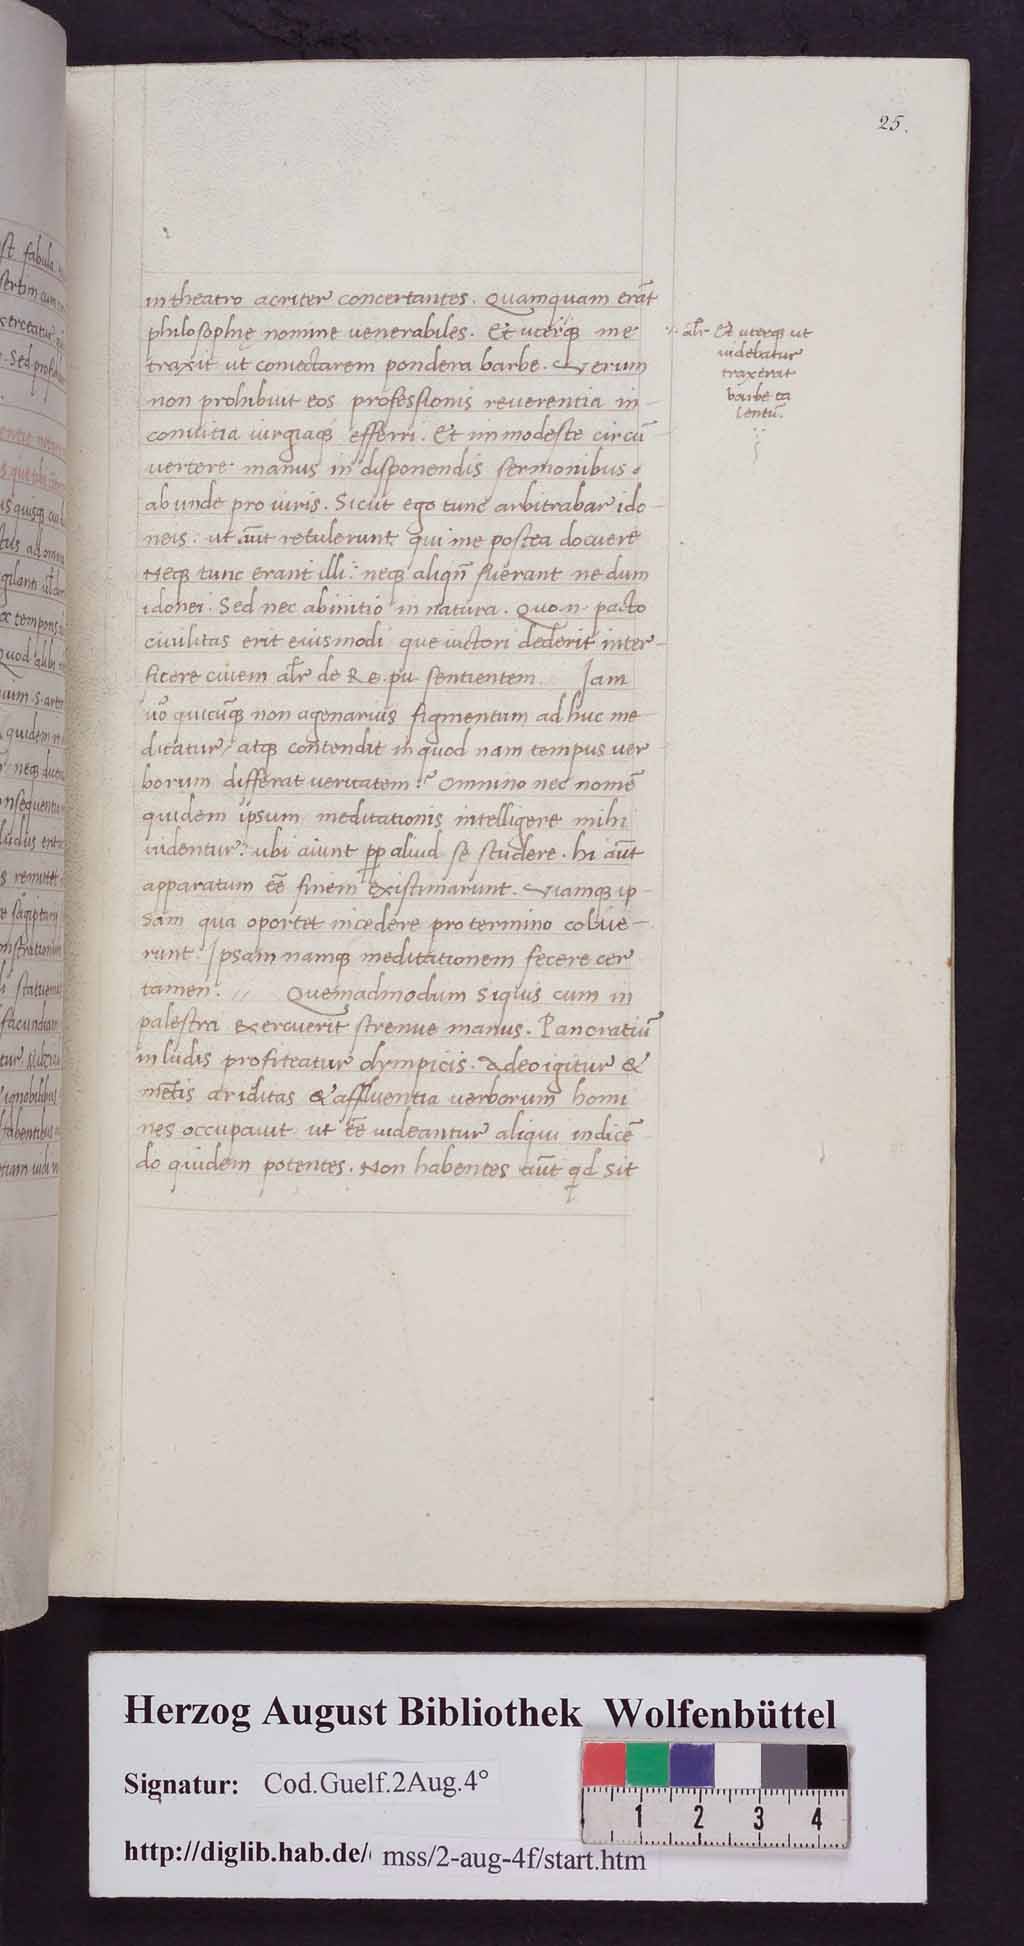 25.
in theatro acriter concertantes. Quamquam erāt
philosophię nomine uenerabiles. Et uterq me
traxit ut coniectarem pondera barbe. Verum
non prohibuit eos professionis reuerentia in-
conuitia iurgiaq efferri. Et immodeste circū
uertere manus in disponendis sermonibus.
abunde pro uiris. Sicut ego tunc arbitrabar ido-
neis: ut aūt retulerunt qui me postea docuere
Neq tunc erant illi: neq aliqn̄ fuerant ne dum
idonei. Sed nec abinitio in natura. Quo.n. pacto
ciuilitas erit eiusmodi que iuctori dederit inter-
ficere ciuem alr̄ de Re.pu sentientem. Iam
uō quicūq non agenarius figmentum ad huc me
ditatur/ atq contendit in quod nam tempus uer
borum differat ueritatem: Omnino nec nomē
quidem ipsum meditationis intelligere mihi
uidentur: ubi aiunt pp aliud se studere. hi aūt
apparatum eē finem existimarunt. Viamq ip-
sam qua oportet incedere pro termino coluē-
runt: Ipsam namq meditationem fecere cer
tamen: // Quemadmodum siquis cum in
palestra exercuerit strenue manus. Pancratiū
in ludis profiteatur olympicis. Adeo igitur &
mētis ariditas & affluentia uerborum homi
nes occupauit ut eē uideantur aliqui in dicē
do quidem potentes. Non habentes aūt qd sit
alr̄ Et uterq ut
uidebatur
traxerat
barbe ta
lentū.
st fabula
sertim cum
Sed profi
Herzog August Bibliothek Wolfenbüttel
Signatur: Cod.Guelf.2Aug.4°
http://diglib.hab.de/ mss/2-aug-4f/start.htm
1 2 3 4